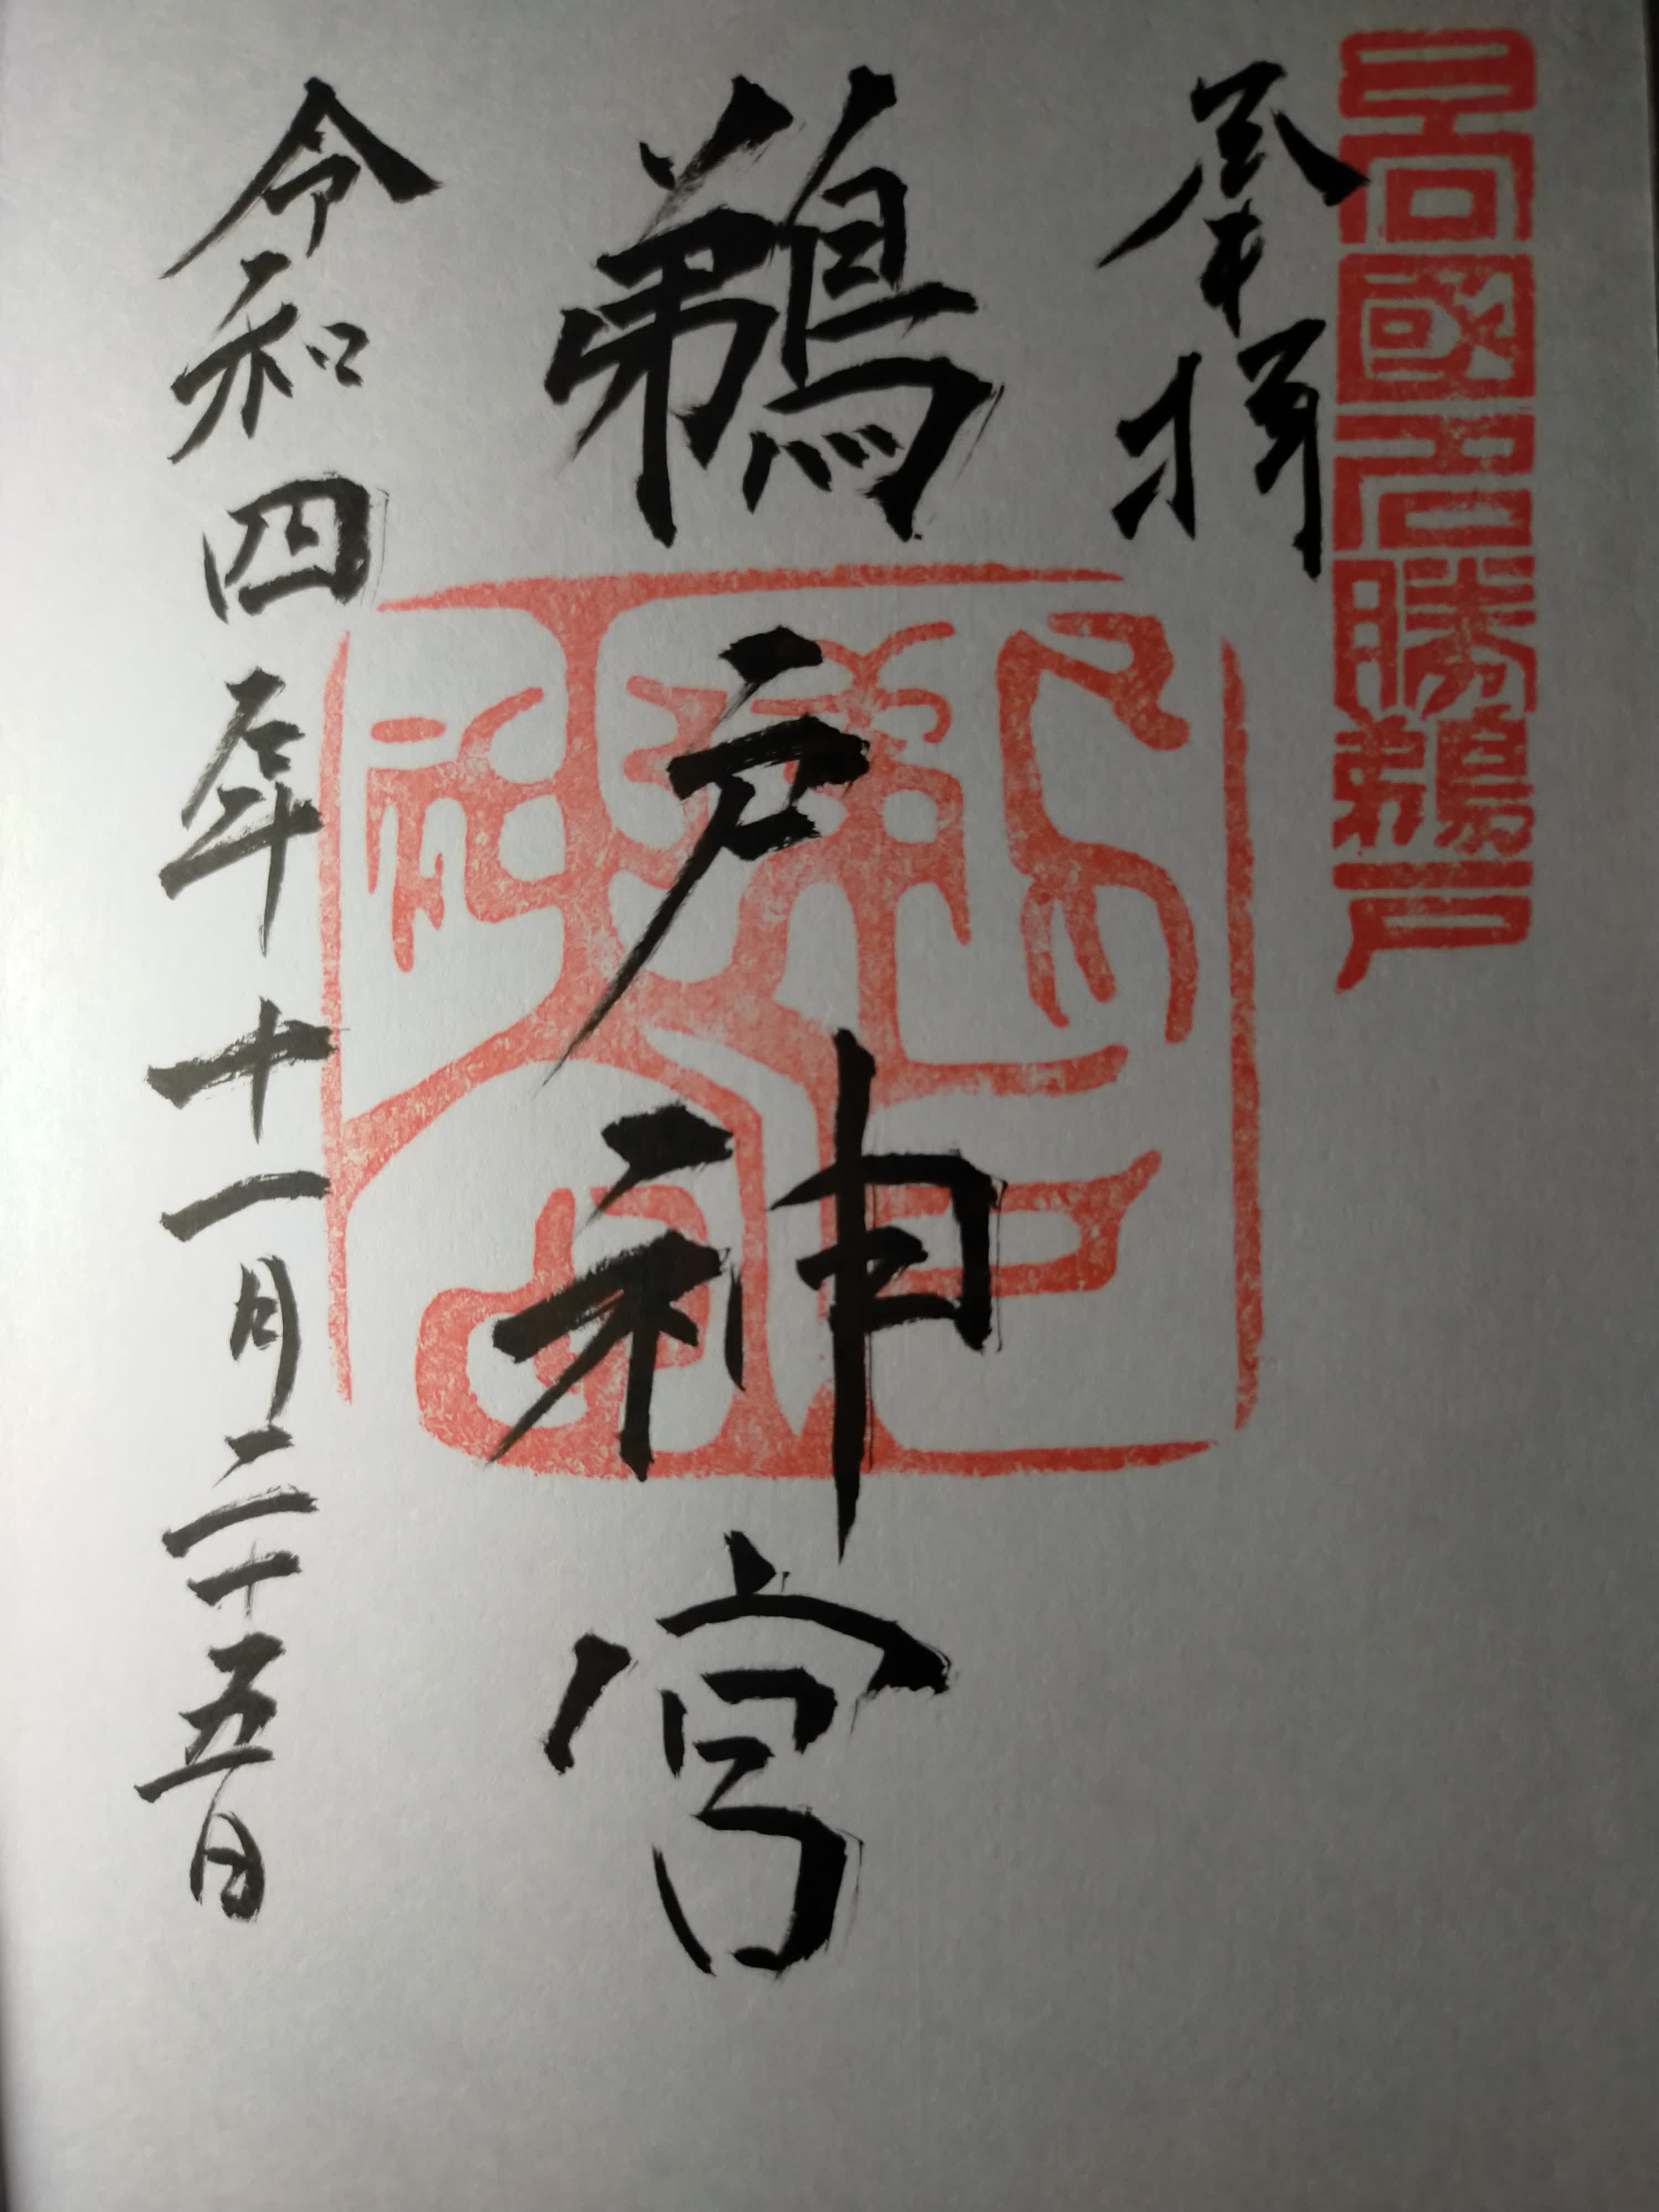 日向國名勝鵜戸
奉拝
鵜戸神宮
鵜戸
神宮
令和四年十一月二十五日